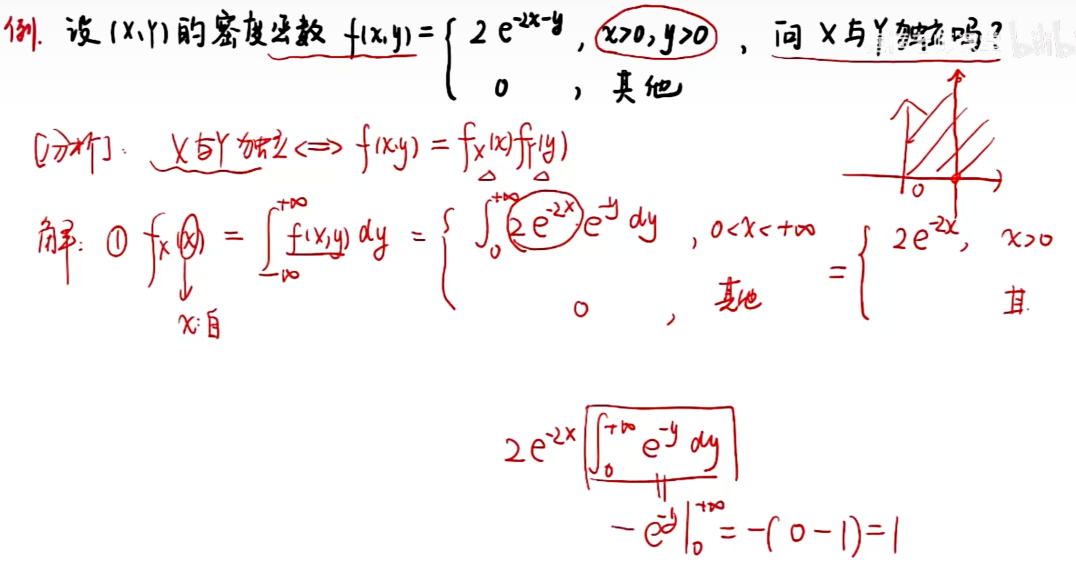 例. 设(X,Y)的密度函数 f(x,y) = { 2e^{-2x-y}, x>0, y>0 , 问 X与Y独立吗?
0 , 其他
[分析]: X与Y独立 <=> f(x,y) = f_X(x)f_Y(y)
0
解: ① f_X(x) = ∫_{-∞}^{+∞} f(x,y) dy = { ∫_0^{+∞} 2e^{-2x} e^{-y} dy , 0<x<+∞ = { 2e^{-2x}, x>0
0 , 其他 其
x:自
2e^{-2x} ∫_0^{+∞} e^{-y} dy
||
-e^{-y}|_0^{+∞} = -(0-1)=1